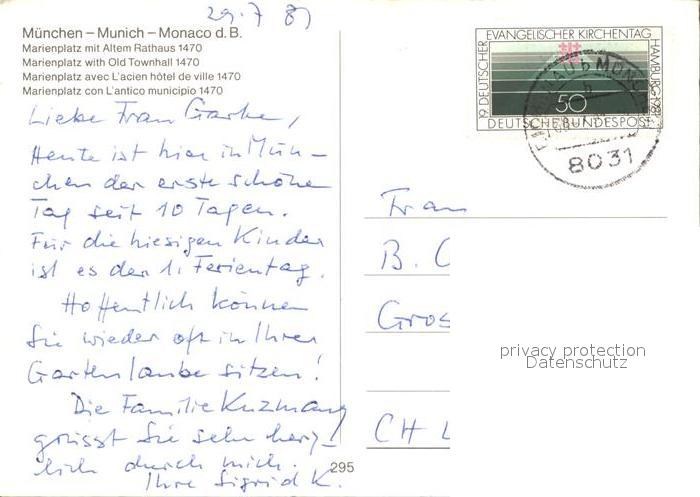 29.7.81
München – Munich – Monaco d. B.
Marienplatz mit Altem Rathaus 1470
Marienplatz with Old Townhall 1470
Marienplatz avec L'acien hôtel de ville 1470
Marienplatz con L'antico municipio 1470
Liebe Frau Garke,
Heute ist hier in Mün-
chen der erste schöne
Tag seit 10 Tagen.
Für die hiesigen Kinder
ist es der 1. Ferientag.
Hoffentlich können
Sie wieder oft in Ihrer
Gartenlaube sitzen!
Die Familie Kuzmany
grüsst Sie sehr herz-
lich durch mich.
Ihre Sigrid K.
295
19. DEUTSCHER EVANGELISCHER KIRCHENTAG HAMBURG 1981
50
DEUTSCHE BUNDESPOST
8031
Frau
B. C
Gros
CH L
privacy protection
Datenschutz